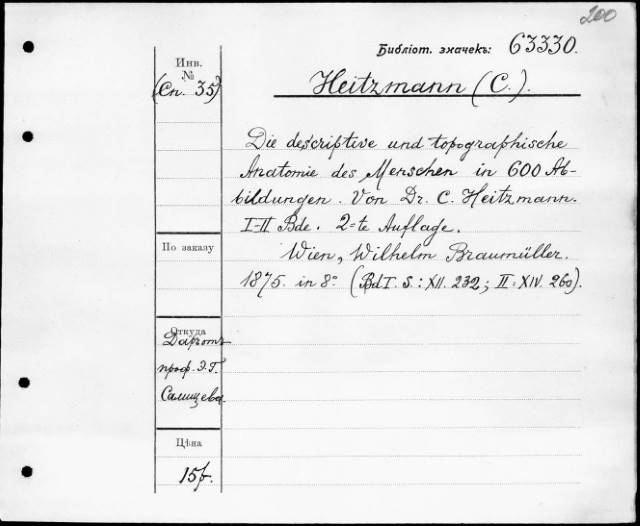 200
Библіот. значекъ: 63330.
Инв.
№
(Сп. 35)
Heitzmann (C.).
Die descriptive und topographische
Anatomie des Menschen in 600 Ab-
bildungen. Von Dr. C. Heitzmann.
I-II Bde. 2-te Auflage.
Wien, Wilhelm Braumüller.
1875. in 8° (Bd I. S.: XII. 232; II: XIV. 260).
По заказу
Откуда
Даромъ
проф. Э.Г.
Салищева.
Цѣна
15 р.